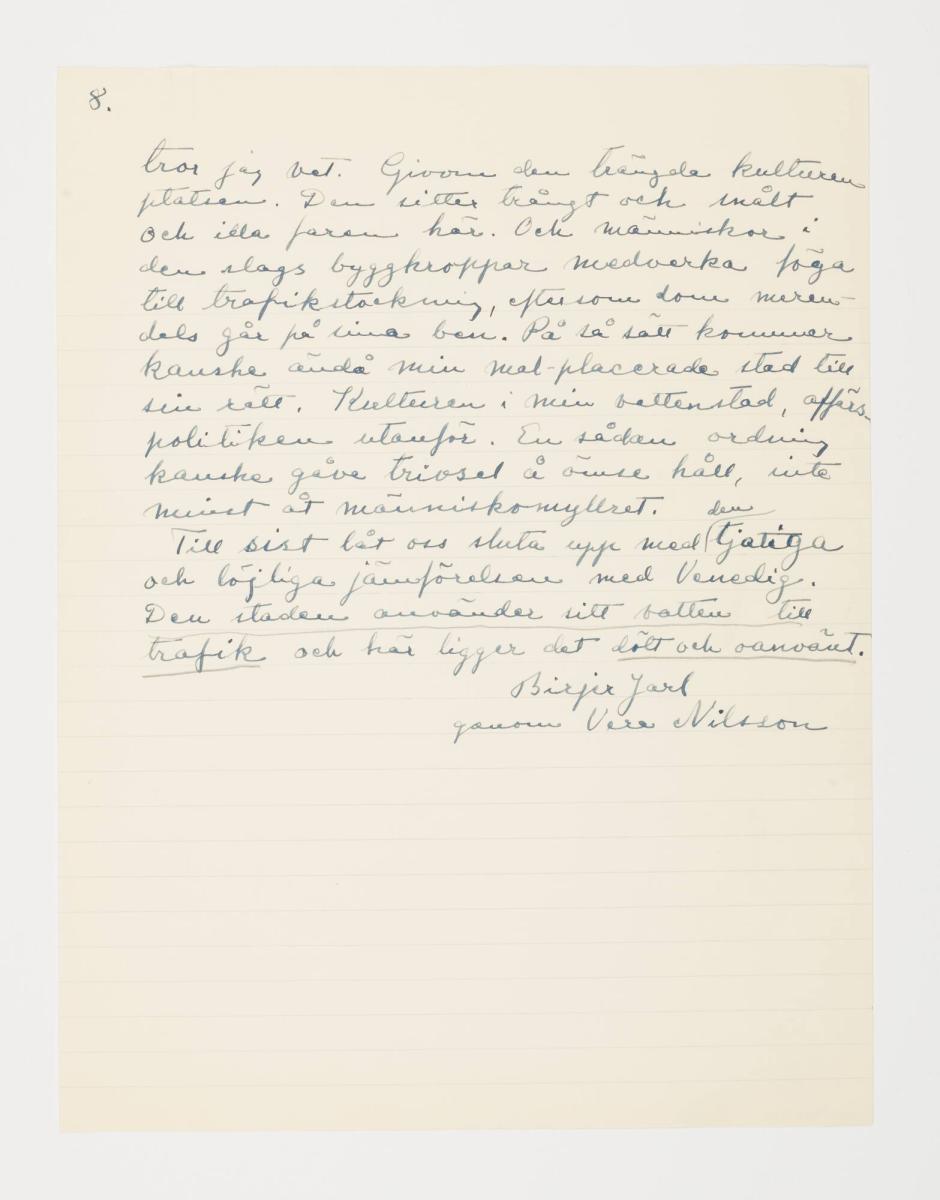 8.
tror jag vet. Givom den trängda kulturen
platsen. Den sitter trångt och smålt
och illa faren här. Och människor i
den slags byggkroppar medverka föga
till trafikstockning, eftersom dom meren-
dels går på sina ben. På så sätt kommer
kanske ändå min mal-placerade stad till
sin rätt. Kulturen i min vattenstad, affärs-
politiken utanför. En sådan ordning
kanske gåve trivsel å ömse håll, inte
minst åt människomyllret.
den
Till sist låt oss sluta upp med tjatiga
och löjliga jämförelsen med Venedig.
Den staden använder sitt vatten till
trafik och här ligger det dött och oanvänt.
Birjer Jarl
genom Vera Nilsson